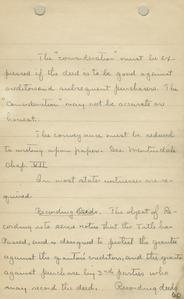 The "consideration" must be ex-
pressed if the deed is to be good against
creditors and subsequent purchasers. The
"consideration" may not be accurate or
honest.
The conveyance must be reduced
to writing upon paper. See
Chap. VII
In most state witnesses are re-
quired
Recording Deeds. The object of Re-
cording is to serve notice that the Title has
Passed, and is designed to protect the grantee
against the grantors creditors, and the grantee
against purchase by 3rd parties who
may record the deed. Recording deeds